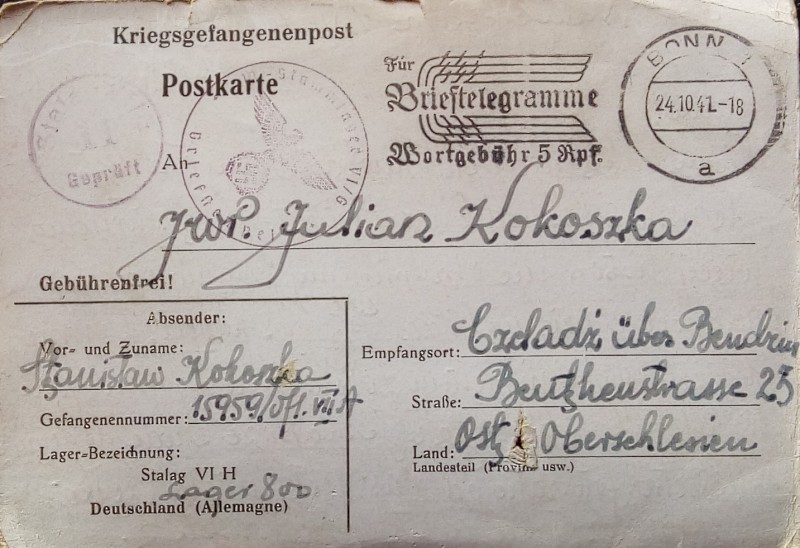 Kriegsgefangenenpost
Postkarte
Für
Brieftelegramme
Wortgebühr 5 Rpf.
BONN 1
24.10.41.-18
a
Geprüft
An
Julian Kokoszka
Gebührenfrei!
Absender:
Vor= und Zuname:
Stanisław Kokoszka
Gefangenennummer: 15959/Ofl. VII A
Lager=Bezeichnung:
Stalag VI H
Lager 800
Deutschland (Allemagne)
Empfangsort: Czeladź über Bendzin
Straße: Beuthenstrasse 25
Land: Ost Oberschlesien
Landesteil (Provinz usw.)